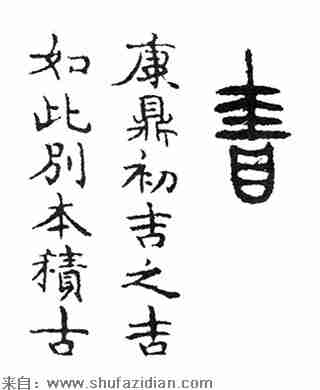 吉
康鼎初吉之吉
如此別本積古
来自：www.shufazidian.com